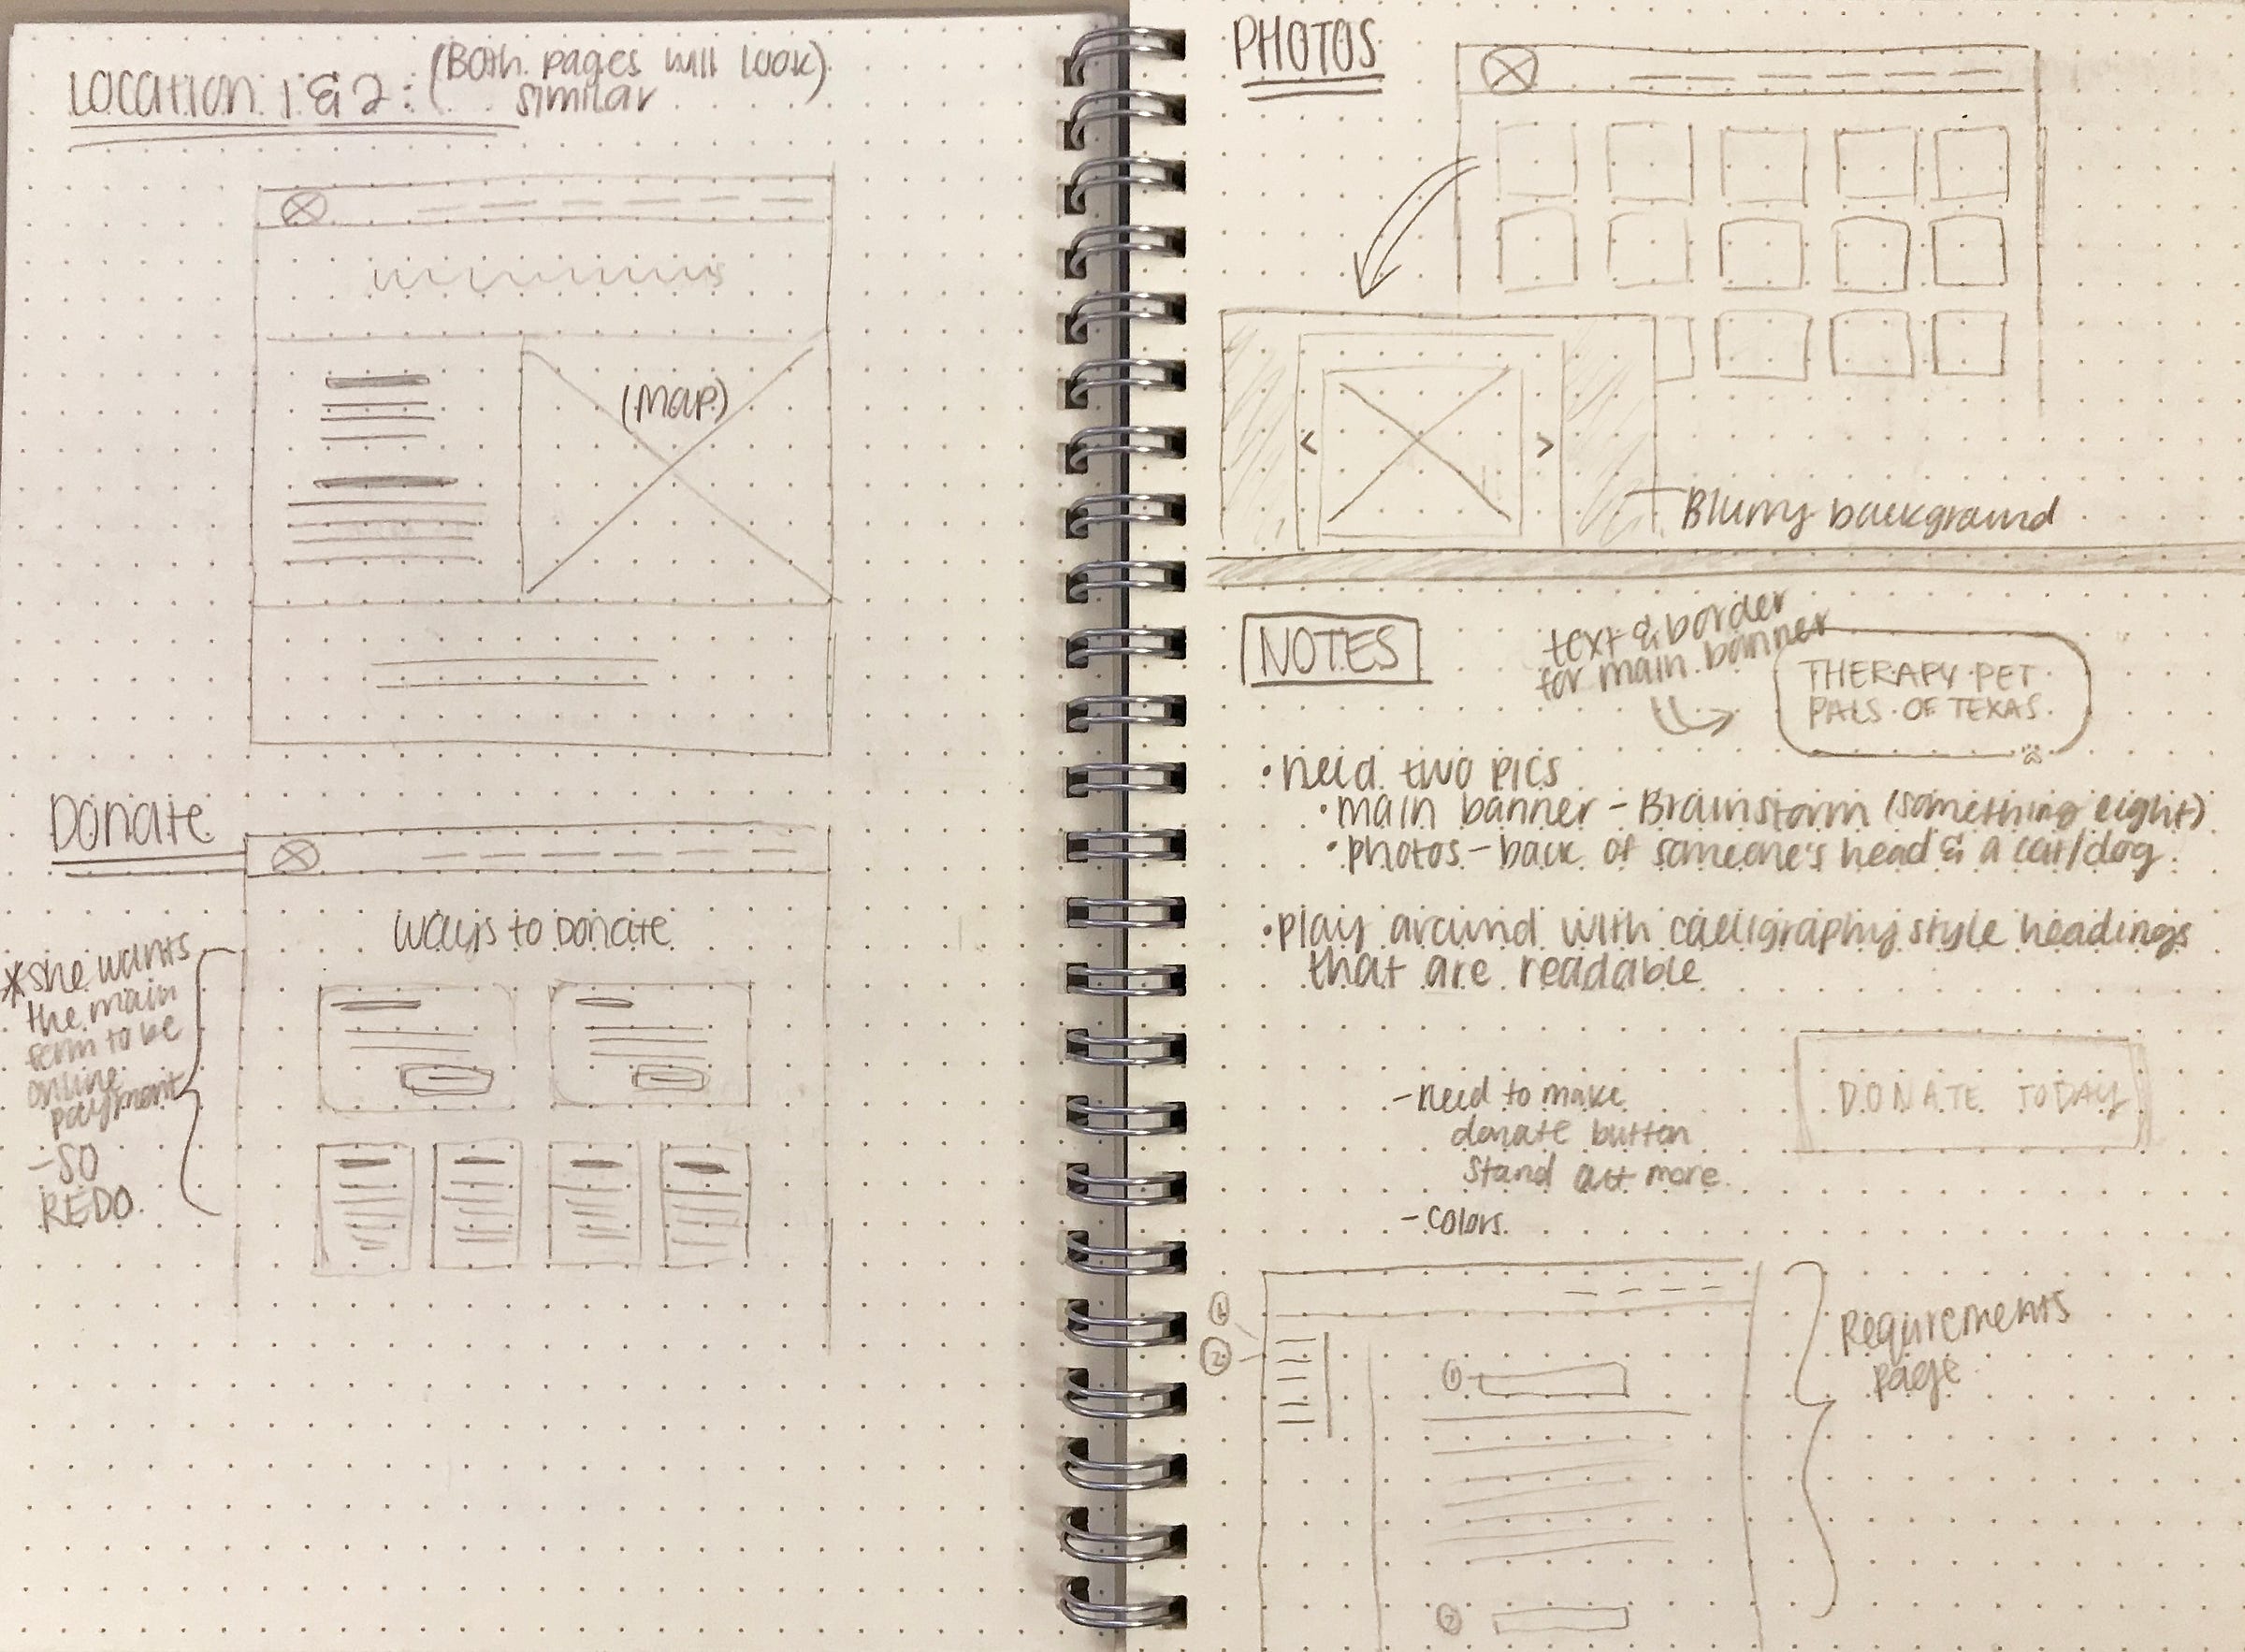 LOCATION 1 & 2: (Both pages will look
similar)
(Map)
Donate
Ways to Donate
*she wants
the main
form to be
online
payment
- SO
REDO.
PHOTOS
< >
Blurry background
NOTES
text & border
for main banner
THERAPY PET
PALS OF TEXAS
• need two pics
• main banner - Brainstorm (something eight)
• photos - back of someone's head & a cat/dog.
• play around with calligraphy style headings
that are readable
- need to make
donate button
stand out more.
DONATE TODAY
- colors.
1
2
1
Requirements
page
2